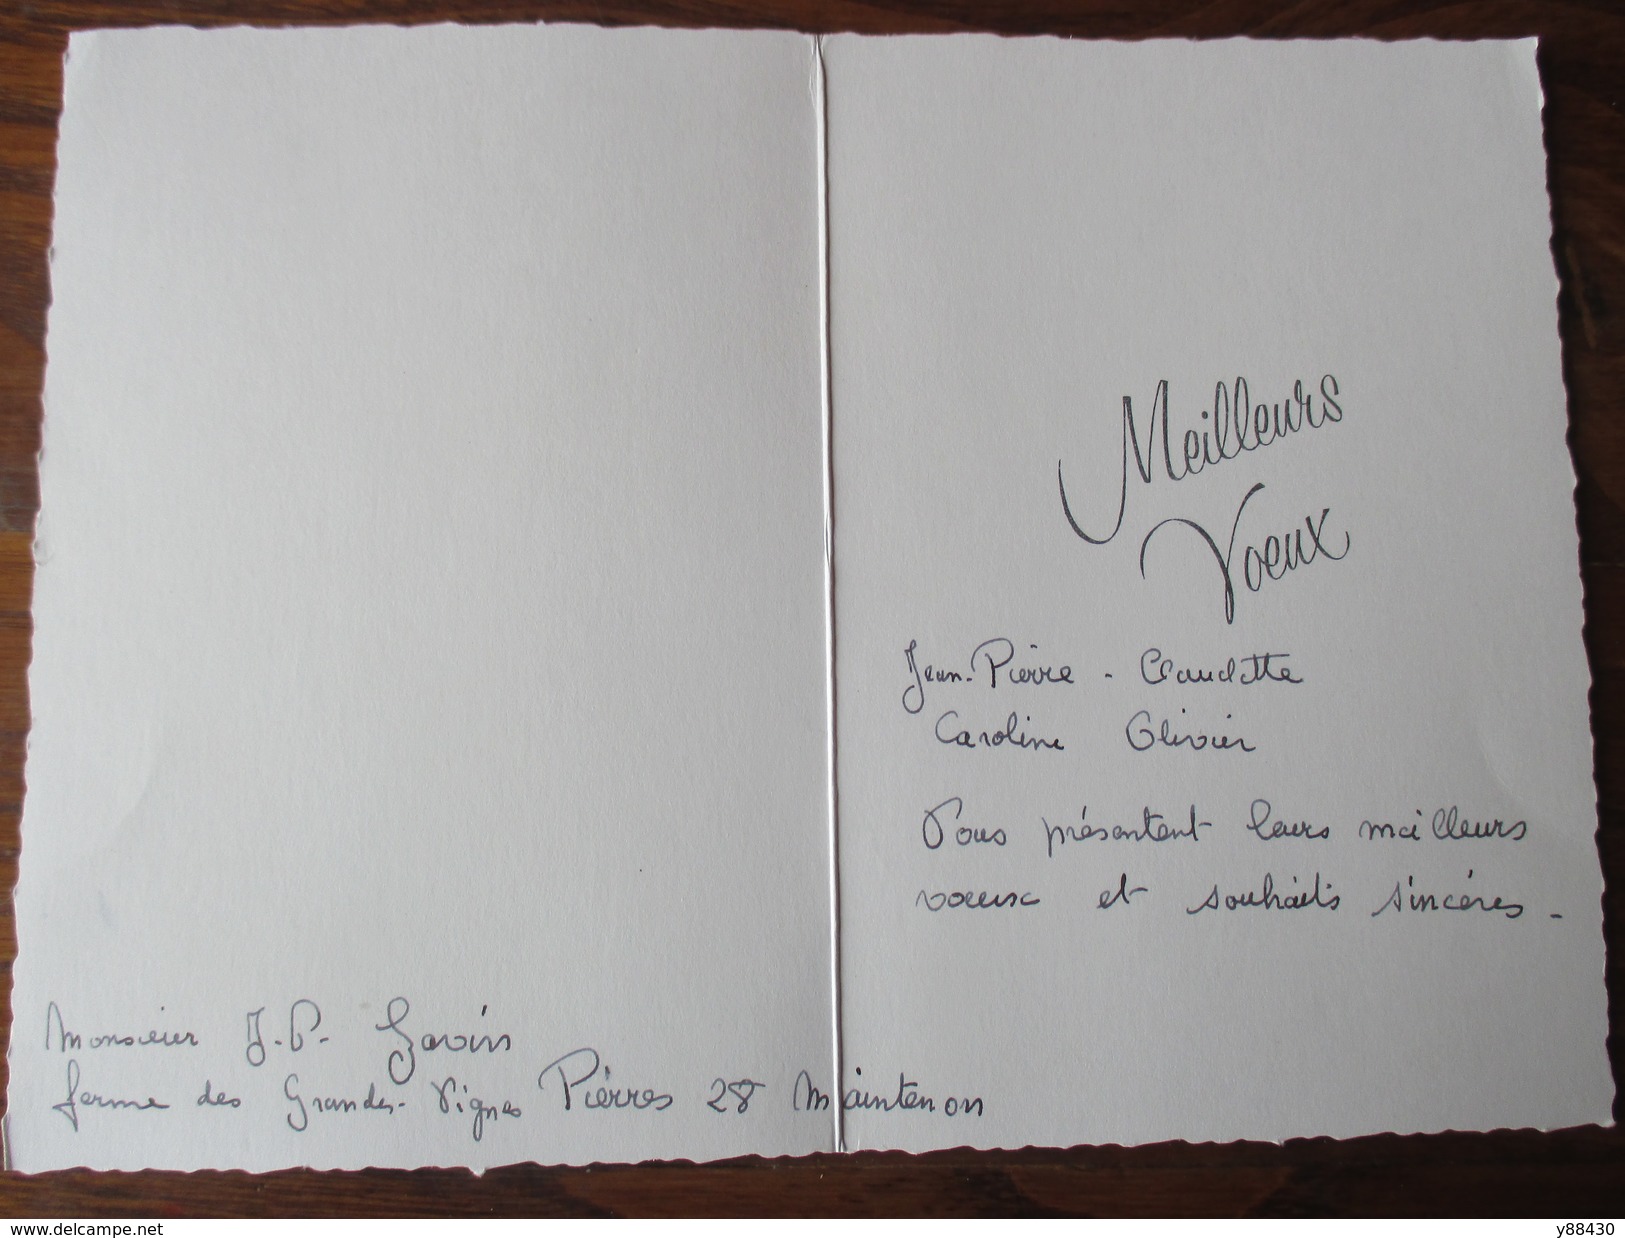 Meilleurs
Voeux
Jean-Pierre - Claudette
Caroline Olivier
Vous présentent leurs meilleurs
voeux et souhaits sincères -
Monsieur J.P.
ferme des Grandes-Vignes Pierres 28 Maintenon
www.delcampe.net
y88430